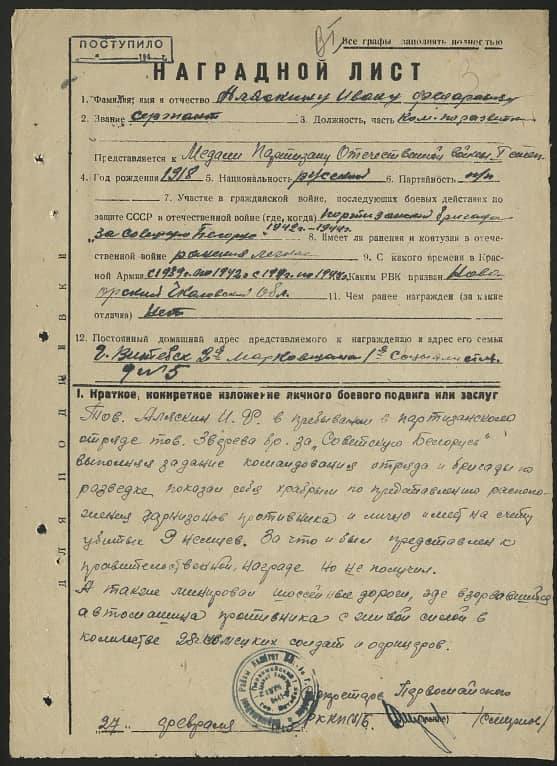 ПОСТУПИЛО
194 г.
Все графы заполнять полностью
НАГРАДНОЙ ЛИСТ
1. Фамилия, имя и отчество Аляскину Ивану
2. Звание сержант 3. Должность, часть
Представляется к Медали Партизану Отечественной войны I степ.
4. Год рождения 1918 5. Национальность русский 6. Партийность
7. Участие в гражданской войне, последующих боевых действиях по
защите СССР и отечественной войне (где, когда) партизанский бригада
"за советскую Белорус" 1942г.-1944г. 8. Имеет ли ранения и контузии в отече-
ственной войне ранения 9. С какого времени в Крас-
ной Армии с 1939г. по Каким РВК призван Ново
орский Чкаловский обл. 11. Чем ранее награжден (за какие
отличия) Нет
12. Постоянный домашний адрес представляемого к награждению и адрес его семьи
г. Витебск
д № 5
I. Краткое, конкретное изложение личного боевого подвига или заслуг
Тов. Аляскин И. Ф. в пребывании в партизанского
отряде тов. Зверева бр. за "Советскую Белорусь"
выполняя задание командования отряда и бригады по
разведке показал себя храбрым по предоставлению распо-
ложения гарнизонов противника и лично имеет на счету
убитых 9 немцев. За что и был представлен к
правительственной награде но не получил.
А также минировал шоссейные дороги, где взорвавшийся
автомашина противника с живой силой в
количестве 28 немецких солдат и офицеров.
Первомайского
27 февраля РККП(б)Б (Смирнов)
ДЛЯ ПОДШЕВКИ